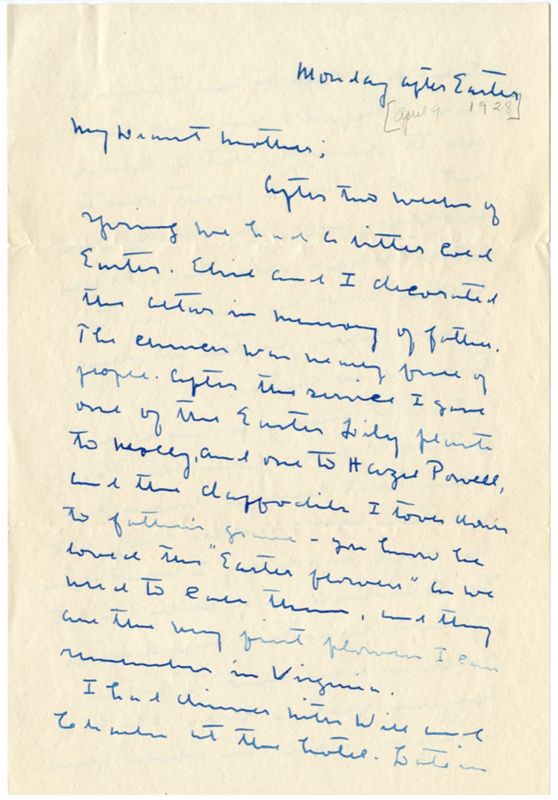 Monday after Easter
[April 9 1928]
My Dearest Mother;
After two weeks of
spring we had a bitter cold
Easter. Elsie and I decorated
the altar in memory of father.
The church was nearly full of
people. After the service I gave
one of the Easter Lily plants
to Molly, and one to Hazel Powell,
and the daffodils I took down
to father's grave - you know he
loved the "Easter flowers" as we
used to call them, and they
are the very first flowers I can
remember in Virginia.
I had dinner with Will and
Charlie at the hotel. Late in